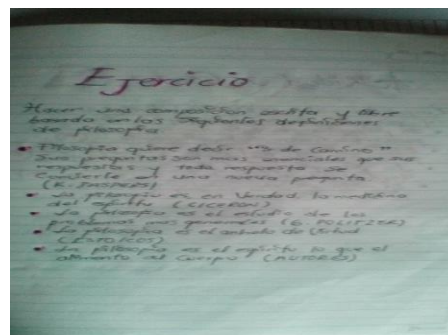 Ejercicio
Hacer una composición escrita y libre
basada en las siguientes definiciones
de filosofía.
Filosofía quiere decir "ir de camino"
Sus preguntas son mas esenciales que sus
respuestas y toda respuesta se
convierte en una nueva pregunta
(K. JASPERS)
La filosofía es en verdad la medicina
del espíritu (CICERON)
La filosofía es el estudio de los
problemas mas generales (G. POLITZER)
La filosofía es el anhelo de (ESTOICOS)
La filosofía es al espíritu lo que el
alimento al cuerpo (AUTORES)